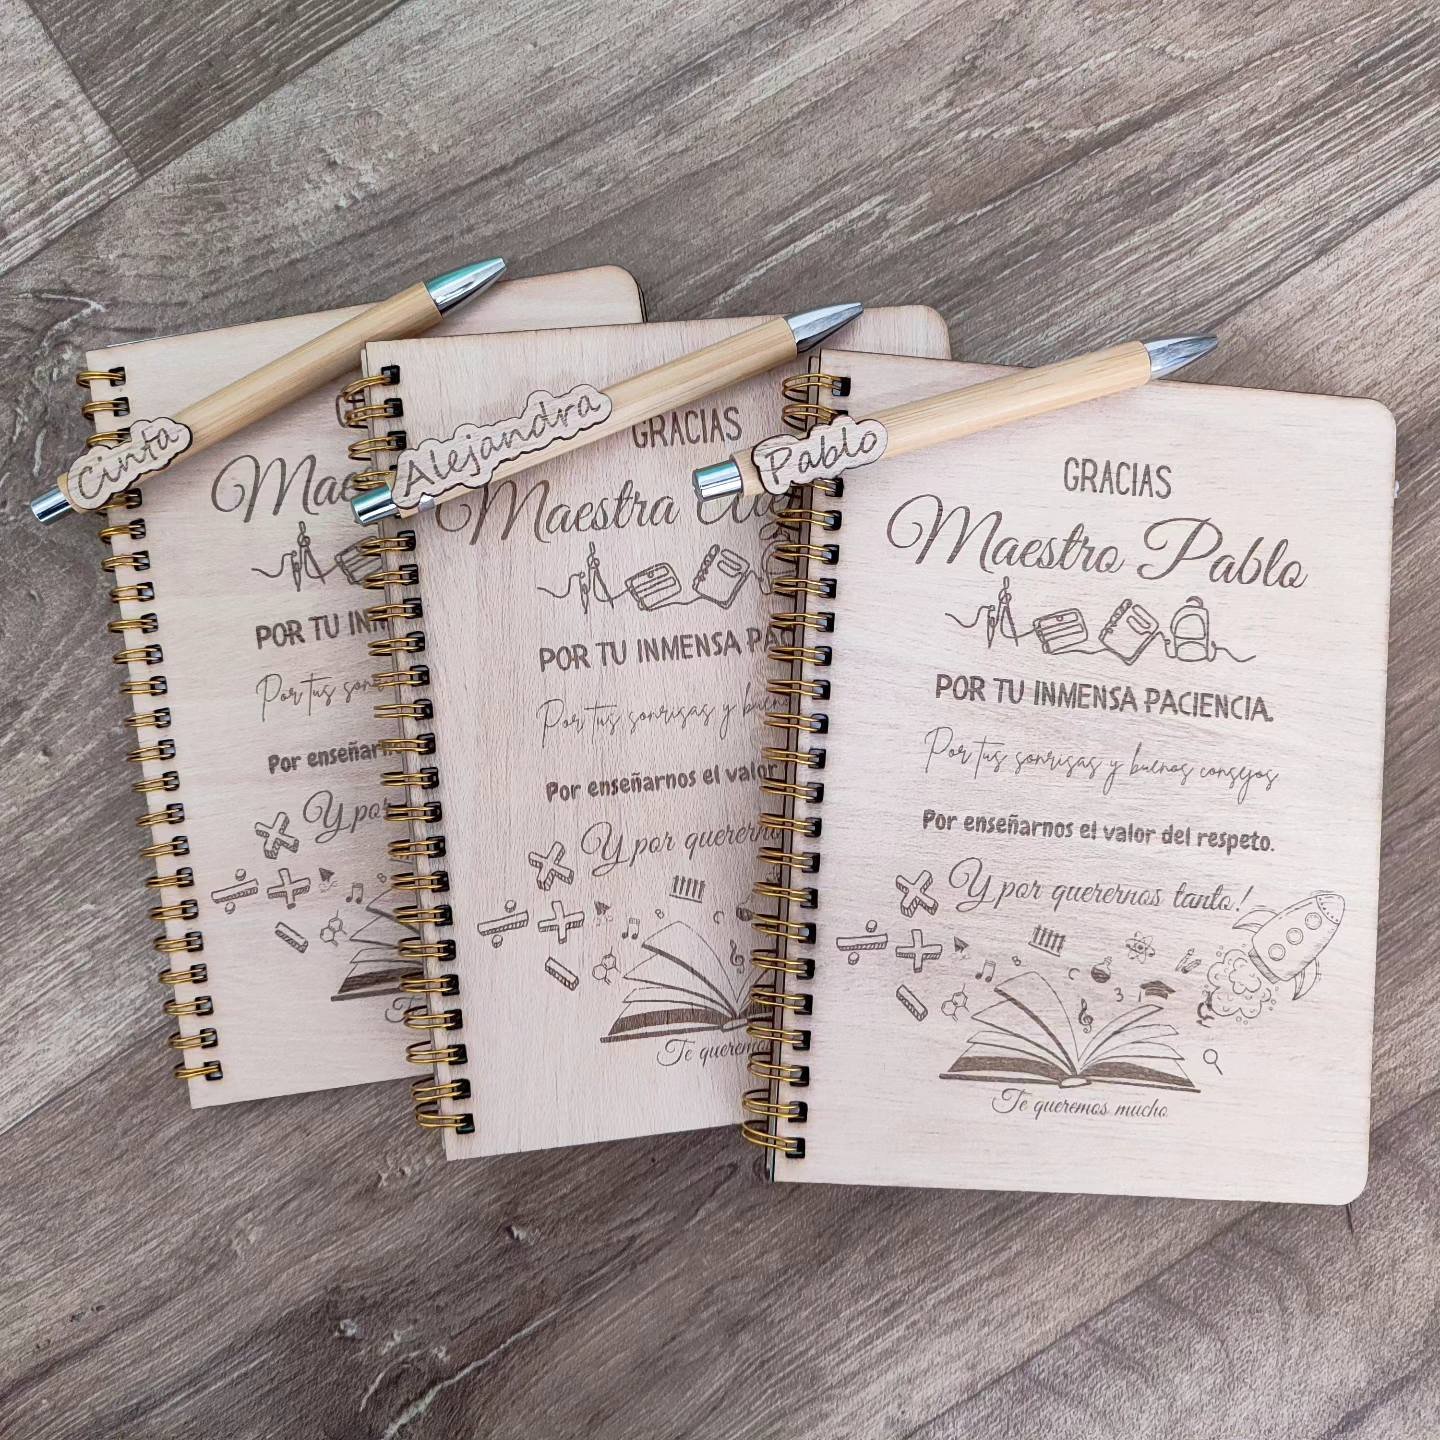 Cinta
POR TU
Por tus
Por
Y por
Alejandra
GRACIAS
Maestra
POR TU INMENSA
Por tus sonrisas y
Por enseñarnos el valor
Y por
Te
Pablo
GRACIAS
Maestro Pablo
POR TU INMENSA PACIENCIA.
Por tus sonrisas y buenos consejos
Por enseñarnos el valor del respeto.
Y por querernos tanto!
B
C
3
Te queremos mucho